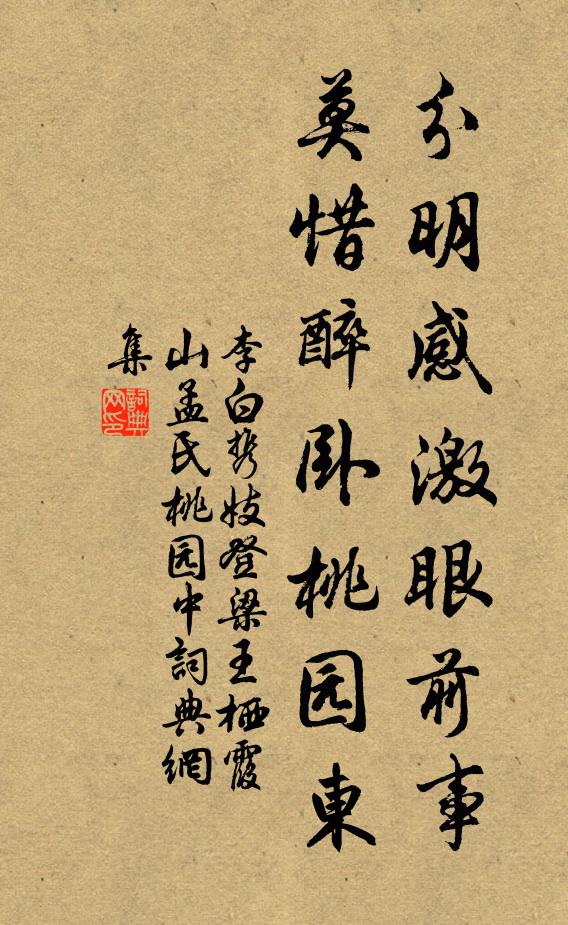 分明感激眼前事
莫惜醉卧桃园東
李白携妓登梁王栖霞
山孟氏桃园中詞典網
集
詞典
网印